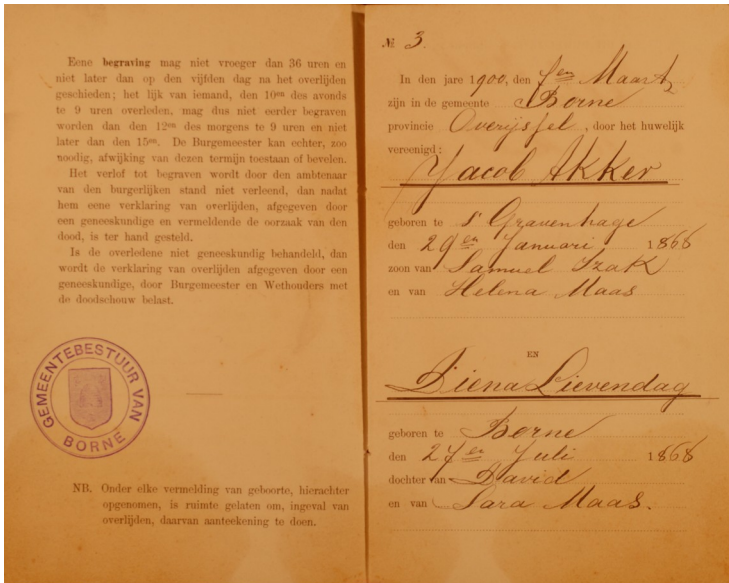 Eene begraving mag niet vroeger dan 36 uren en
niet later dan op den vijfden dag na het overlijden
geschieden; het lijk van iemand, den 10en des avonds
te 9 uren overleden, mag dus niet eerder begraven
worden dan den 12en des morgens te 9 uren en niet
later dan den 15en. De Burgemeester kan echter, zoo
noodig, afwijking van dezen termijn toestaan of bevelen.
Het verlof tot begraven wordt door den ambtenaar
van den burgerlijken stand niet verleend, dan nadat
hem eene verklaring van overlijden, afgegeven door
een geneeskundige en vermeldende de oorzaak van den
dood, is ter hand gesteld.
Is de overledene niet geneeskundig behandeld, dan
wordt de verklaring van overlijden afgegeven door een
geneeskundige, door Burgemeester en Wethouders met
de doodschouw belast.
GEMEENTEBESTUUR VAN
BORNE
NB. Onder elke vermelding van geboorte, hierachter
opgenomen, is ruimte gelaten om, ingeval van
overlijden, daarvan aanteekening te doen.
№ 3.
In den jare 1900, den Maart
zijn in de gemeente Borne
provincie Overijssel, door het huwelijk
vereenigd:
Jacob Akker
geboren te 's Gravenhage
den 29en Januari 1866
zoon van Samuel Izak
en van Helena Maas
EN
Diena Lievendag
geboren te Borne
den 27en Juli 1868
dochter van David
en van Sara Maas.